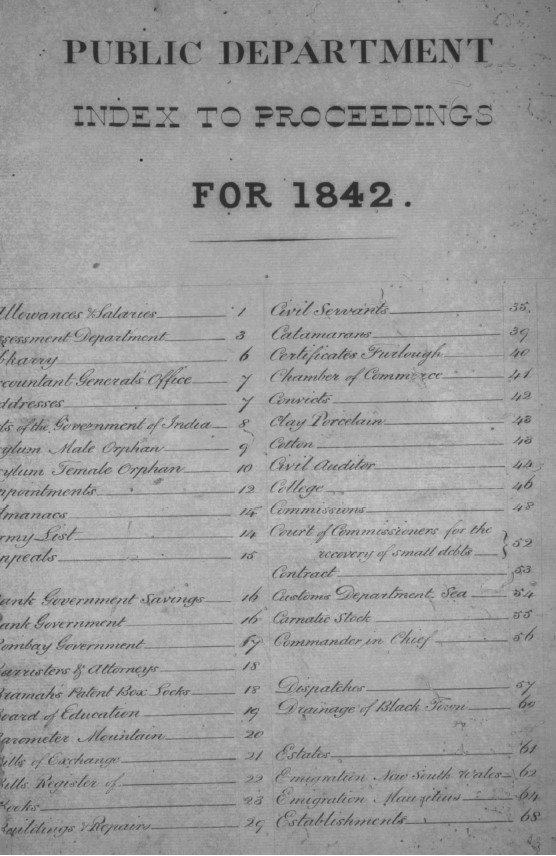 PUBLIC DEPARTMENT
INDEX TO PROCEEDINGS
FOR 1842.
Allowances & Salaries 1
ssessment Department 3
bkarry 6
ccountant Generals Office 7
ddresses 7
ts of the Government of India 8
sylum Male Orphan 9
sylum Female Orphan 10
ppointments 12
lmanacs 14
rmy List 14
ppeals 15
ank Government Savings 16
ank Government 16
ombay Government 17
arristers & Attorneys 18
Bramahs Patent Box Locks 18
oard of Education 19
arometer Mountain 20
ills of Exchange 21
ills Register of 22
ooks 23
Buildings & Repairs 29
Civil Servants 35
Catamarans 39
Certificates Furlough 40
Chamber of Commerce 41
Convicts 42
Clay Porcelain 43
Cotton 43
Civil Auditor 44
College 46
Commissions 48
Court of Commissioners for the
recovery of small debts 52
Contract 53
Customs Department Sea 54
Carnatic Stock 55
Commander in Chief 56
Dispatches 57
Drainage of Black Town 60
Estates 61
Emigration New South Wales 62
Emigration Mauritius 64
Establishments 68